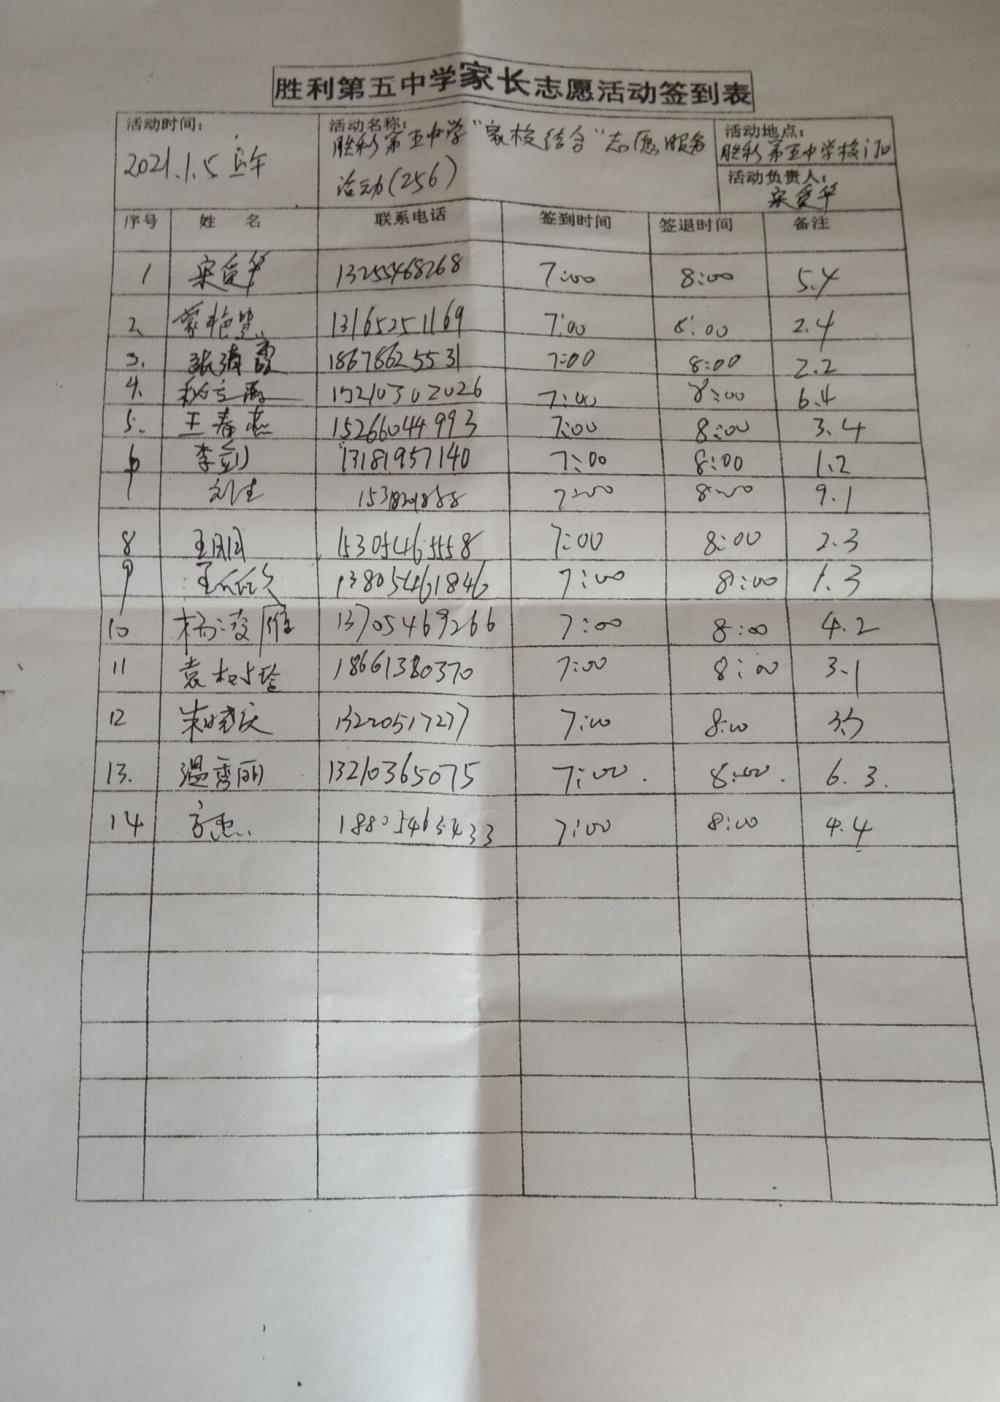 胜利第五中学家长志愿活动签到表
活动时间：
2021.1.5
活动名称：
胜利第五中学“家校结合”志愿服务
活动(256)
活动地点：
胜利第五中学校门口
活动负责人：
宋爱华
序号 姓 名 联系电话 签到时间 签退时间 备注
1 宋爱华 13255468268 7:00 8:00 5.4
2 13165251169 7:00 8:00 2.4
3. 18678625531 7:00 8:00 2.2
4. 17210302026 7:00 8:00 6.4
5. 王春燕 15266044993 7:00 8:00 3.4
6 李剑 13181957140 7:00 8:00 1.2
7 7:00 8:00 9.1
8 15305465558 7:00 8:00 2.3
9 13805461846 7:00 8:00 1.3
10 杨凌雁 13705469266 7:00 8:00 4.2
11 18661380370 7:00 8:00 3.1
12 朱晓庆 13220517277 7:00 8:00 3.3
13. 温秀丽 13210365075 7:00. 8:00. 6.3.
14 方惠 18805463433 7:00 8:00 4.4